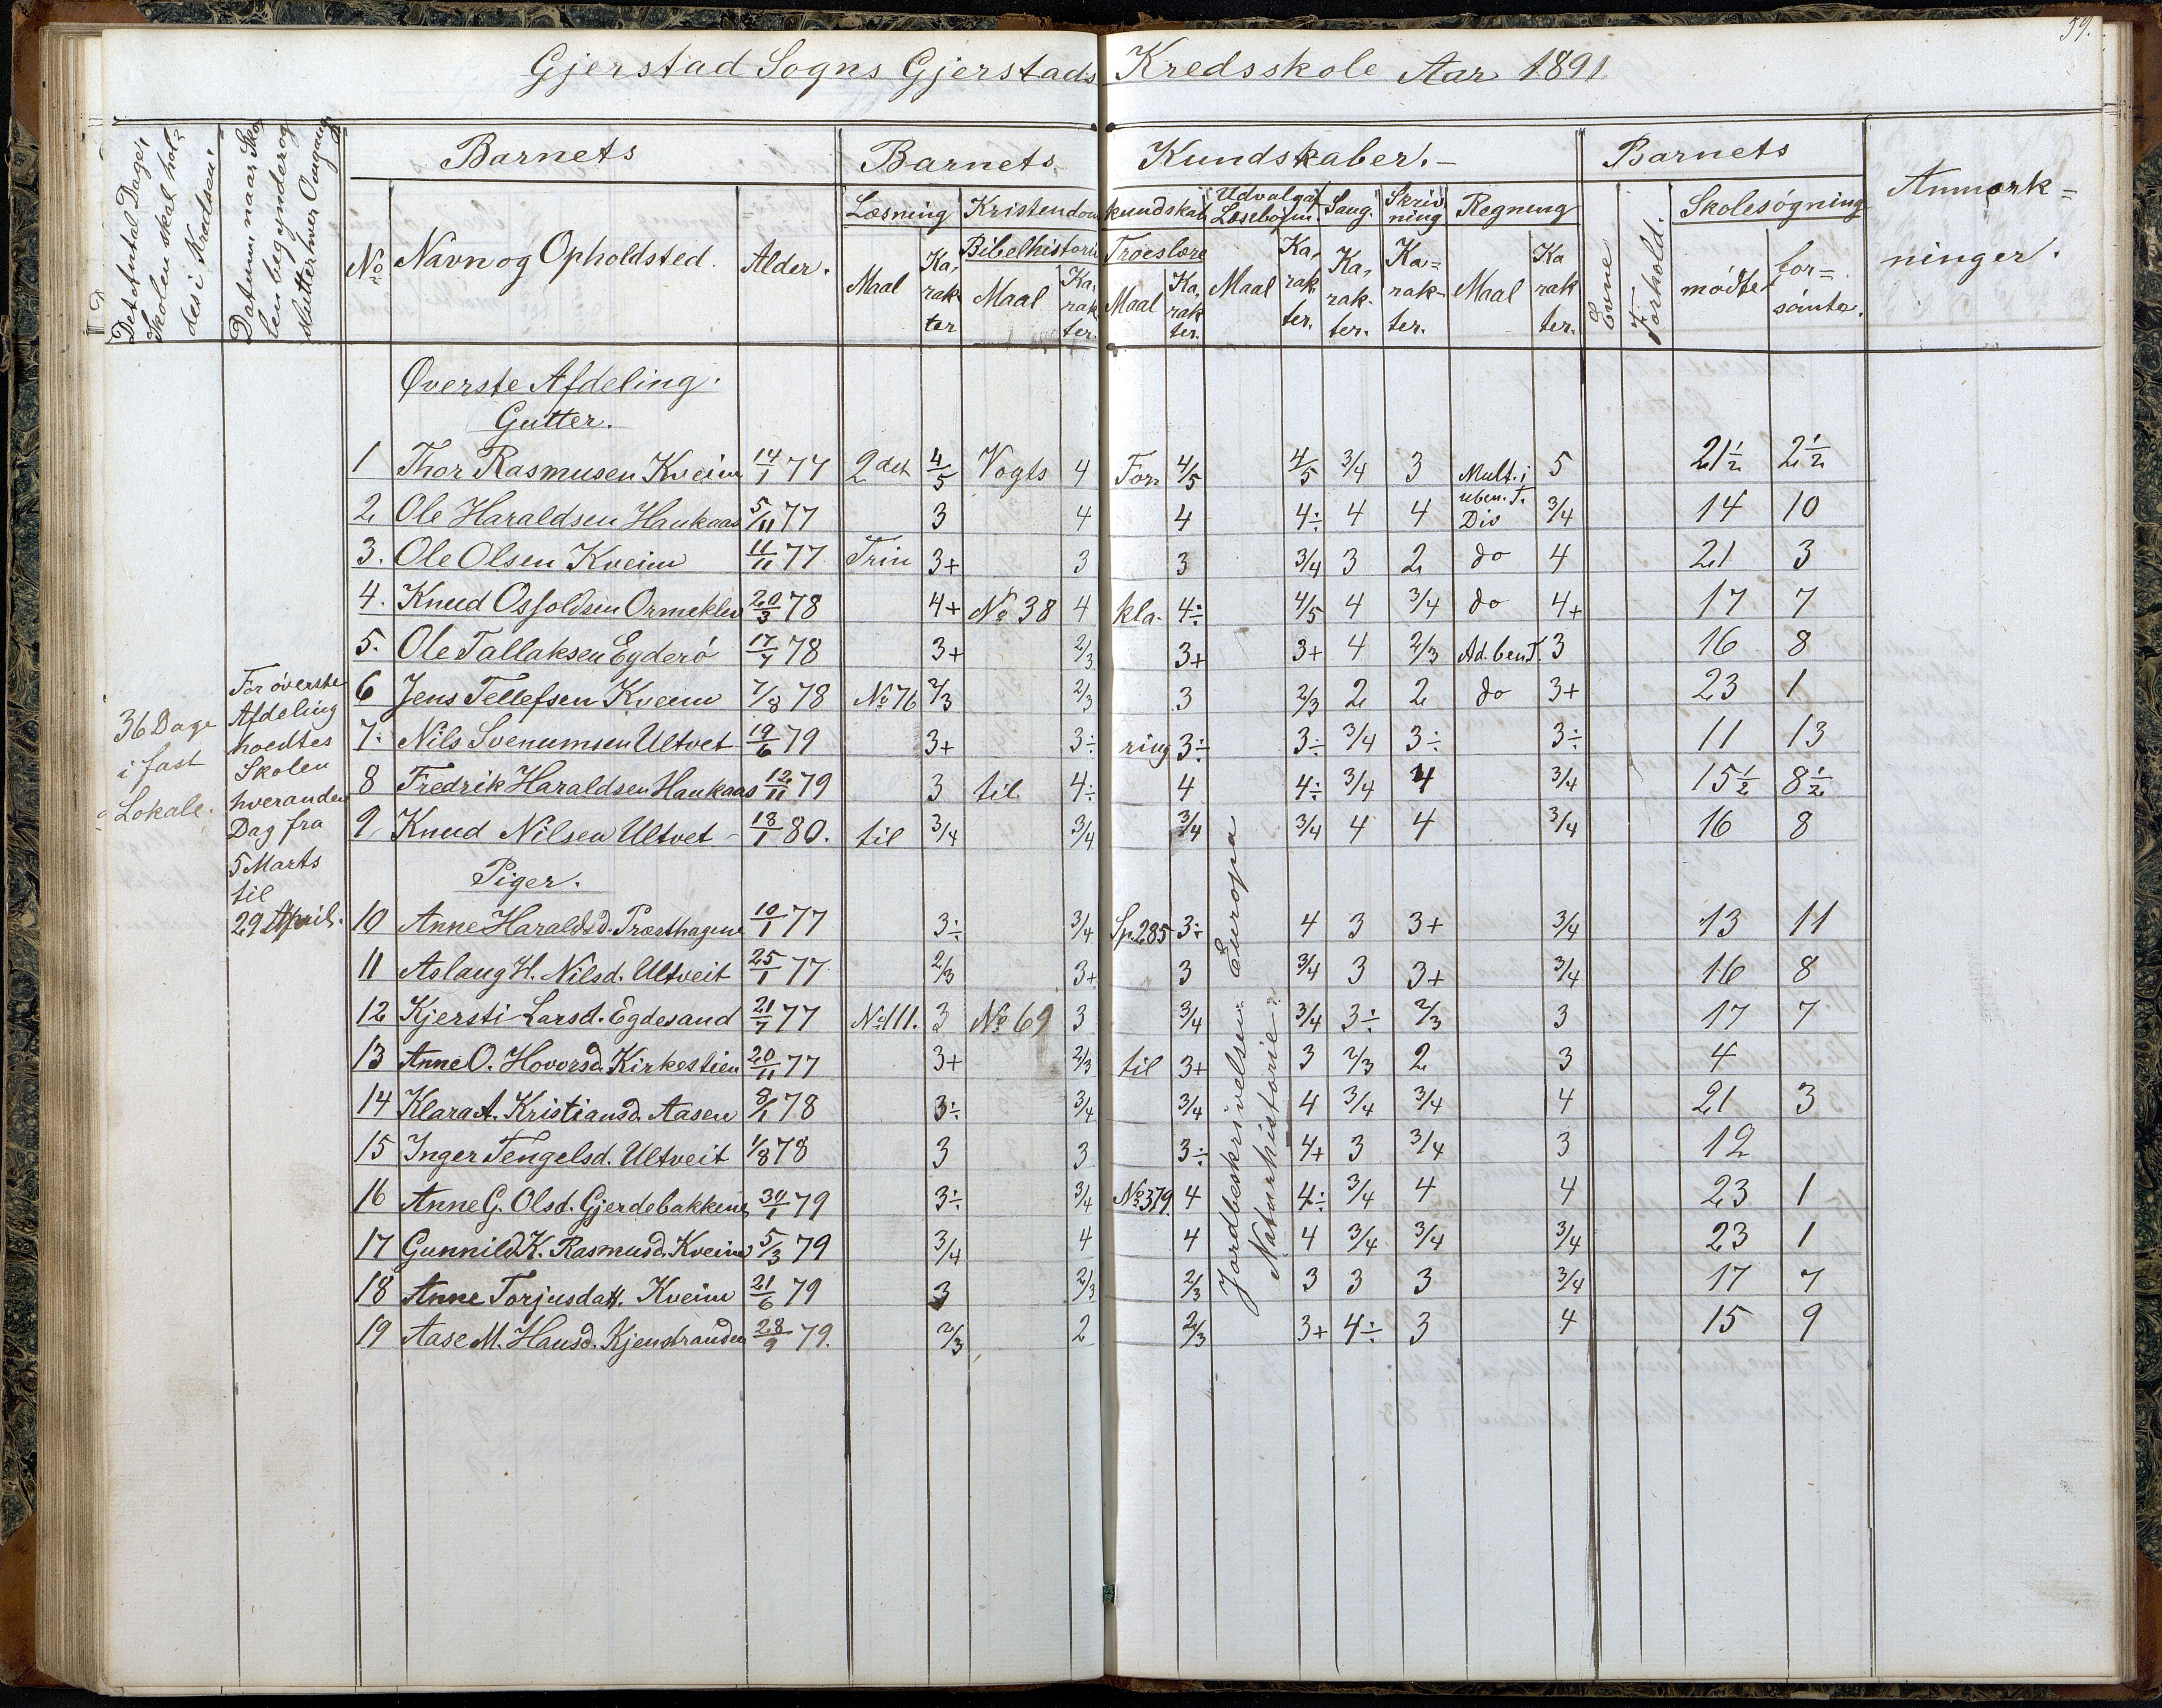 59.
Gjerstad Sogns Gjerstads Kredsskole Aar 1891
Det Antal Dage, Skolen skal holdes i Kredsen.
Datum, naar Skolen begynder og slutter hver Omgang
Barnets
Barnets Kundskaber.
Barnets
Anmærkninger.
No
Navn og Opholdsted.
Alder.
Læsning
Kristendomskundskab
Udvalgaf Læsebogen.
Sang.
Skrivning
Regning
Evne
Forhold.
Skolesøgning
Bibelhistorie
Troeslære
Maal
Karakter
Maal
Karakter.
Maal
Karakter.
Maal
Karakter.
Karakter.
Karakter.
Maal
Karakter.
mødte
forsömte.
36 Dage
i fast
Lokale.
For överste
Afdeling
hoedtes
Skolen
hveranden
Dag fra
5 Marts
til
29 April.
Øverste Afdeling.
Gutter.
1 Thor Rasmusen Kveim 14/1 77 2det 4/5 Vogts 4 For 4/5 4/5 3/4 3 Mult. i uben. T. 5 21½ 2½
2 Ole Haraldsen Haukaas 5/11 77 3 4 4 4÷ 4 4 Div 3/4 14 10
3. Ole Olsen Kveim 11/11 77 Trin 3+ 3 3 3/4 3 2 do 4 21 3
4. Knud Osfoldsen Ormeklev 20/3 78 4+ No 38 4 kla- 4÷ 4/5 4 3/4 do 4+ 17 7
5. Ole Tallaksen Egderö 17/7 78 3+ 2/3 3+ 3+ 4 2/3 Ad. ben T. 3 16 8
6 Jens Tellefsen Kveim 7/8 78 No 76 2/3 2/3 3 2/3 2 2 do 3+ 23 1
7. Nils Svenumsen Ultvet 19/6 79 3+ 3÷ ring 3÷ 3÷ 3/4 3÷ 3÷ 11 13
8 Fredrik Haraldsen Haukaas 12/11 79 3 til 4÷ 4 4÷ 3/4 4 3/4 15½ 8½
9 Knud Nilsen Ultvet 18/1 80. til 3/4 3/4 3/4 3/4 4 4 3/4 16 8
Piger.
10 Anne Haraldsd. Præsthagene 10/1 77 3÷ 3/4 Sp. 285 3÷ 4 3 3+ 3/4 13 11
11 Aslaug H. Nilsd. Ultveit 25/1 77 2/3 3+ 3 3/4 3 3+ 3/4 16 8
12 Kjersti Larsd. Egdesand 21/7 77 No 111. 3 No 69 3 3/4 3/4 3÷ 2/3 3 17 7
13 Anne O. Hovorsd. Kirkestien 20/11 77 3+ 2/3 til 3+ 3 2/3 2 3 4
14 Klara A. Kristiansd. Aasen 8/1 78 3÷ 3/4 3/4 4 3/4 3/4 4 21 3
15 Inger Tengelsd. Ultveit 1/8 78 3 3 3÷ 4+ 3 3/4 3 12
16 Anne G. Olsd. Gjerdebakkene 30/1 79 3÷ 3/4 No 379. 4 4÷ 3/4 4 4 23 1
17 Gunnild K. Rasmusd. Kveim 5/3 79 3/4 4 4 4 3/4 3/4 3/4 23 1
18 Anne Torjusdatt. Kveim 21/6 79 3 2/3 2/3 3 3 3 3/4 17 7
19 Aase M. Hansd. Kjenstranden 28/9 79. 2/3 2 2/3 3+ 4÷ 3 4 15 9
Jordbeskrivelsen Europa
Naturhistorie